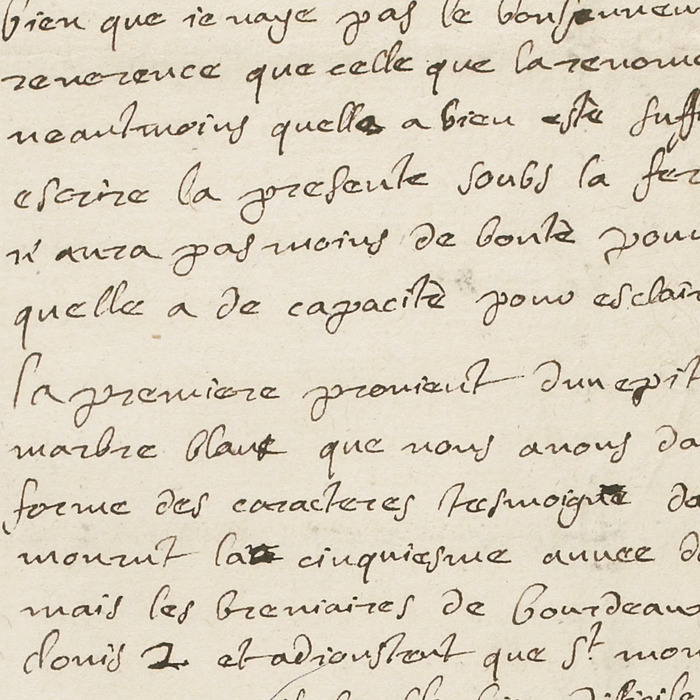 bien que ie naye pas le bonh
reuerence que celle que la renom
neantmoins quelle a bien esté suff
escrire la presente soubs la fer
n'aura pas moins de bonté pour
quelle a de capacité pour esclair
la premiere prouient dun epit
marbre blanc que nous auons da
forme des caracteres tesmoigne da
mourut la cinquiesme annee d
mais les breuiaires de bourdeaux
clouis 2. et adioustent que St mom